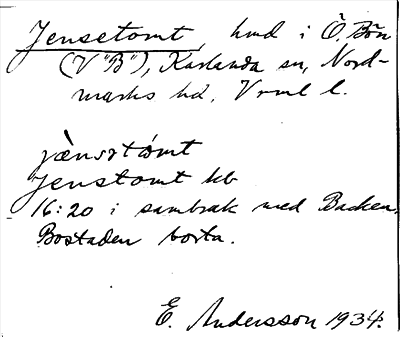 Jensetomt, hmd i Ö. Bön
(V "B"), Karlanda sn, Nord-
marks hd, Vrml l.
jænsɘtómt
Jenstomt kb
16:20 i sambruk med Backen.
Bostaden borta.
E. Andersson 1934.